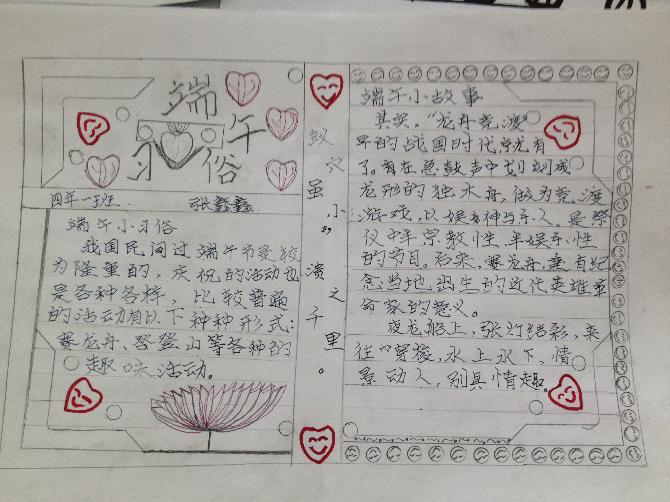 端午
习俗
四年一班 张鑫鑫
端午小习俗
我国民间过端午节是较
为隆重的,庆祝的活动也
是各种各样,比较普遍
的活动有以下种种形式:
赛龙舟、登山等各种的
趣味活动。
蚁穴虽小,溃之千里。
端午小故事
其实,“龙舟竞渡”
早的战国时代就有
了。有在急鼓声中划刻成
龙形的独木舟,做为竞渡
游戏,以娱神与乐人,是祭
仪中半宗教性、半娱乐性
的节目。后来,赛龙舟,兼有纪
念当地出生的近代英雄革
命家的意义。
夜龙船上,张灯结彩,来
往穿梭,水上水下,情
景动人,别具情趣。